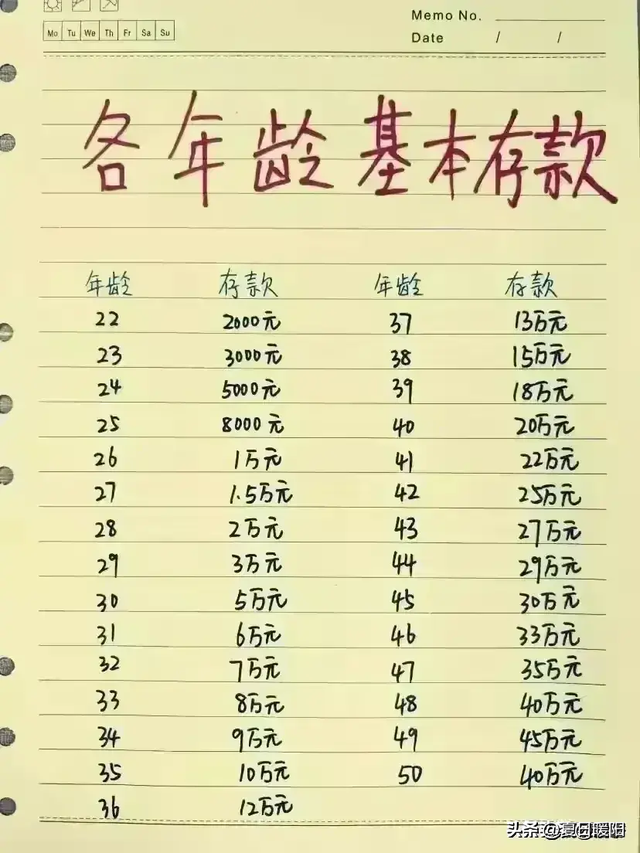 Memo No.
Mo Tu We Th Fr Sa Su
Date / /
各年龄基本存款
年龄 存款 年龄 存款
22 2000元 37 13万元
23 3000元 38 15万元
24 5000元 39 18万元
25 8000元 40 20万元
26 1万元 41 22万元
27 1.5万元 42 25万元
28 2万元 43 27万元
29 3万元 44 29万元
30 5万元 45 30万元
31 6万元 46 33万元
32 7万元 47 35万元
33 8万元 48 40万元
34 9万元 49 45万元
35 10万元 50 40万元
36 12万元
头条 @夏日暖阳